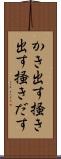 かき出す掻き
出す掻きだす